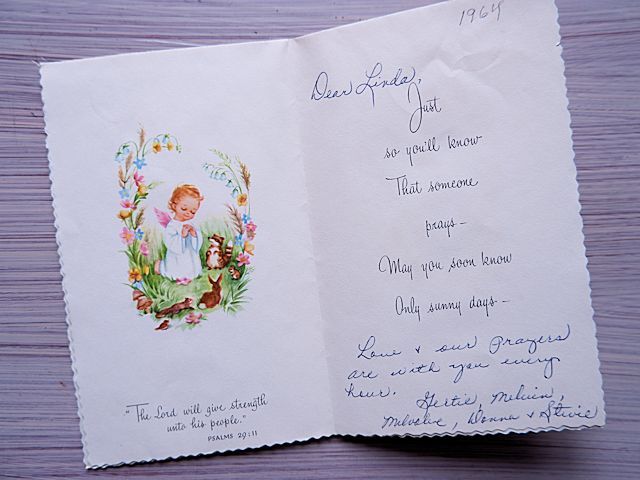 "The Lord will give strength
unto his people."
PSALMS 29:11
1964
Dear Linda,
Just
so you'll know
That someone
prays—
May you soon know
Only sunny days—
Love + our Prayers
are with you every
hour.
Gertie, Melvin,
Donna + Stevie